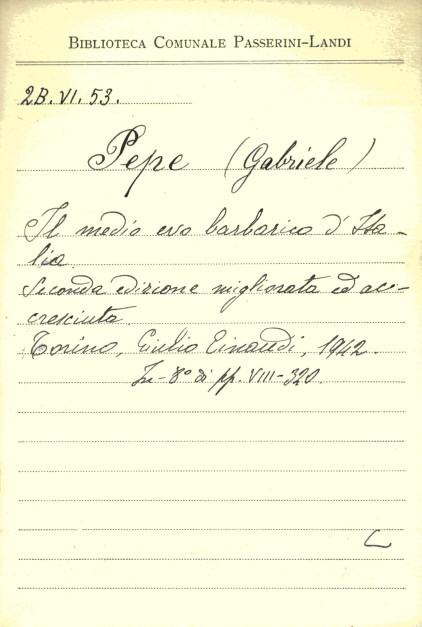 BIBLIOTECA COMUNALE PASSERINI-LANDI
2B. VI. 53.
Pepe (Gabriele)
Il medio evo barbarico d'Ita-
lia.
Seconda edizione migliorata ed ac-
cresciuta.
Torino, Giulio Einaudi, 1942.
In-8° di pp. VIII-320.